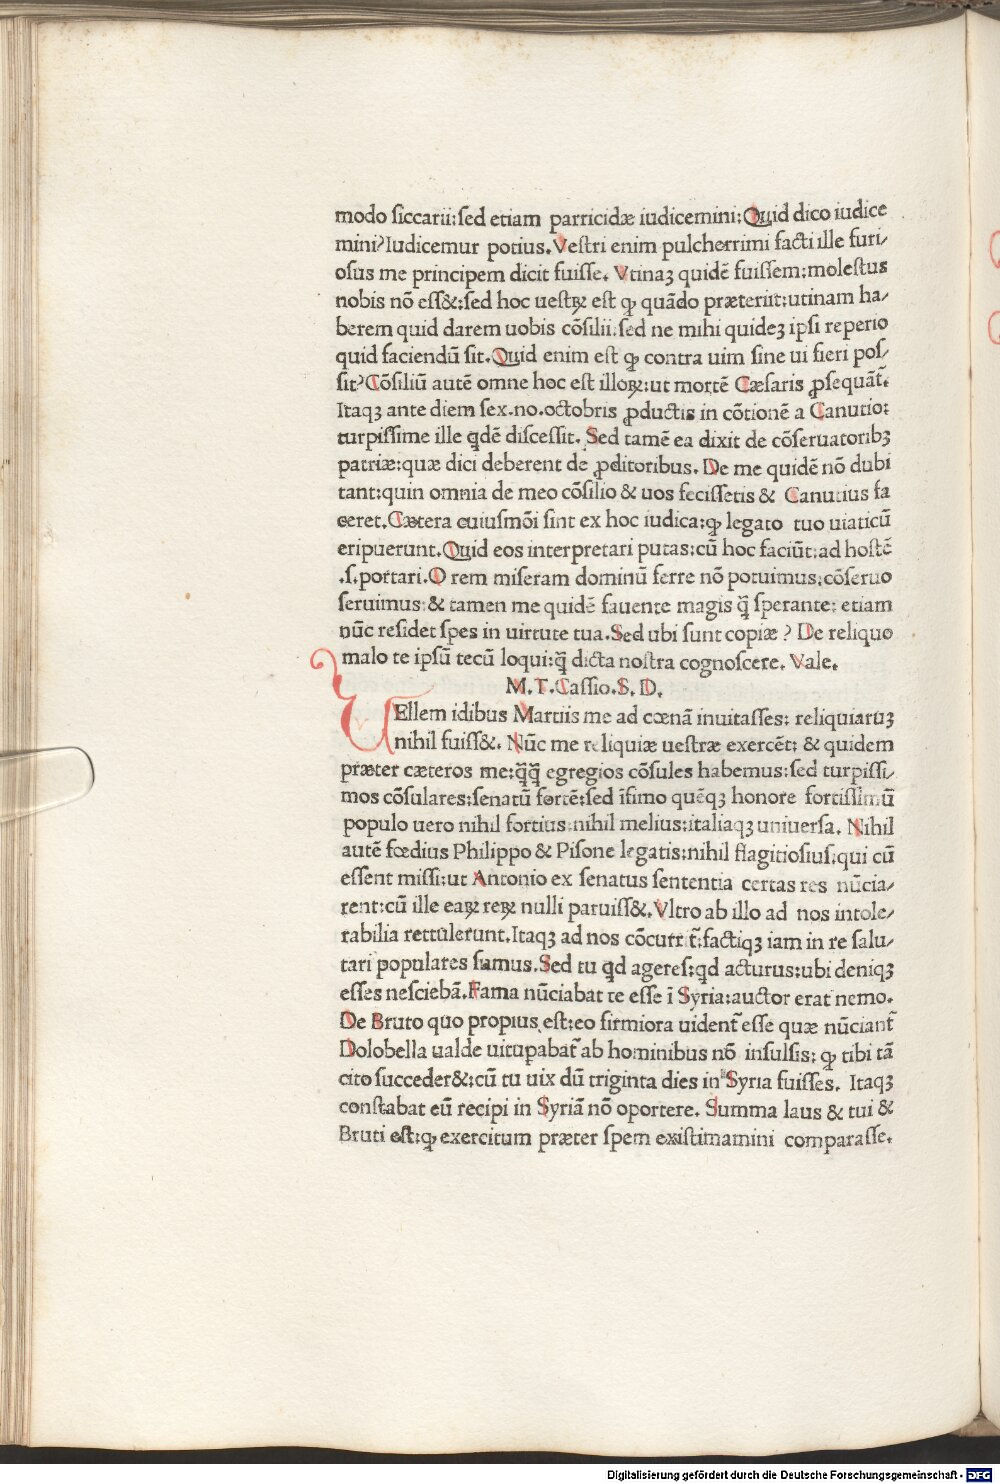 modo siccarii:sed etiam parricidæ iudicemini:Quid dico iudice
mini?Iudicemur potius.Vestri enim pulcherrimi facti ille furi/
osus me principem dicit fuisse.Vtinaꝫ quidē fuissem:molestus
nobis nō ess&:sed hoc uestꝝ est ꝙ quādo præteriit:utinam ha/
berem quid darem uobis cōsilii:sed ne mihi quideꝫ ipsi reperio
quid faciendū sit.Quid enim est ꝙ contra uim sine ui fieri pos/
sit?Cōsiliū autē omne hoc est illoꝝ:ut mortē Cæsaris ꝓsequāt̄.
Itaqꝫ ante diem sex.no.octobris ꝓductis in cōtionē a Canutio:
turpissime ille qdē discessit. Sed tamē ea dixit de cōseruatoribꝫ
patriæ:quæ dici deberent de ꝓditoribus. De me quidē nō dubi
tant:quin omnia de meo cōsilio & uos fecissetis & Canutius fa
ceret.Cætera cuiusmōi sint ex hoc iudica:ꝙ legato tuo uiaticū
eripuerunt.Quid eos interpretari putas:cū hoc faciūt:ad hostē
.s.portari.O rem miseram dominū ferre nō potuimus:cōseruo
seruimus:& tamen me quidē fauente magis q̄ sperante: etiam
nūc residet spes in uirtute tua.Sed ubi sunt copiæ? De reliquo
malo te ipsū tecū loqui:q̄ dicta nostra cognoscere. Vale.
M.T.Cassio.S.D.
VEllem idibus Martiis me ad cœnā inuitasses: reliquiaruꝫ
nihil fuiss&. Nūc me reliquiæ uestræ exercēt: & quidem
præter cæteros me:q̄q̄ egregios cōsules habemus:sed turpissi/
mos cōsulares:senatū fortē:sed īfimo quēqꝫ honore fortissimū
populo uero nihil fortius:nihil melius:italiaqꝫ uniuersa. Nihil
autē fœdius Philippo & Pisone legatis:nihil flagitiosius:qui cū
essent missi:ut Antonio ex senatus sententia certas res nūcia/
rent:cū ille eaꝝ reꝝ nulli paruiss&.Vltro ab illo ad nos intole/
rabilia rettulerunt.Itaqꝫ ad nos cōcurrit̄:factiqꝫ iam in re salu/
tari populares sumus.Sed tu qd ageres:qd acturus:ubi deniqꝫ
esses nesciebā.Fama nūciabat te esse ī Syria:auctor erat nemo.
De Bruto quo propius est:eo firmiora uident̄ esse quæ nūciant̄
Dolobella ualde uitupabat̄ ab hominibus nō insulsis: ꝙ tibi tā
cito succeder&:cū tu uix dū triginta dies in Syria fuisses. Itaqꝫ
constabat eū recipi in Syriā nō oportere. Summa laus & tui &
Bruti est:ꝙ exercitum præter spem existimamini comparasse.
Digitalisierung gefördert durch die Deutsche Forschungsgemeinschaft - DFG